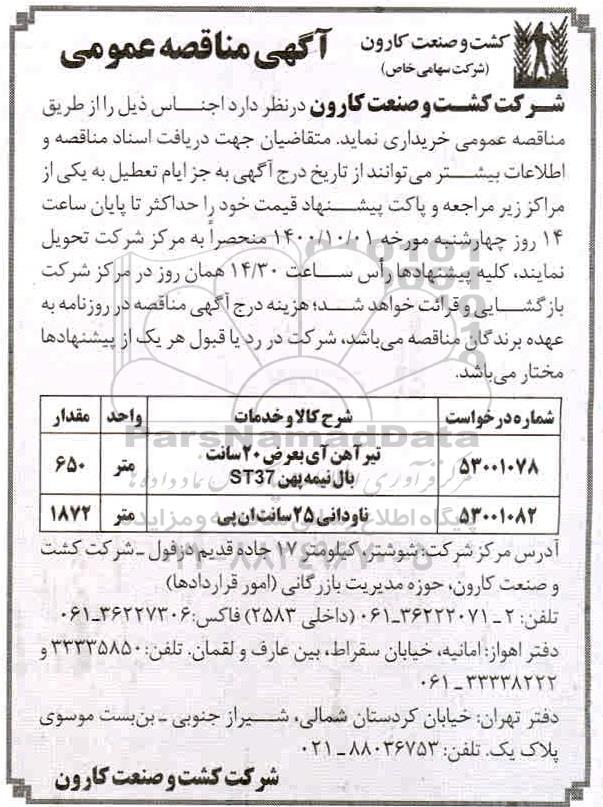 کشت و صنعت کارون
(شرکت سهامی خاص)
آگهی مناقصه عمومی
شرکت کشت و صنعت کارون در نظر دارد اجناس ذیل را از طریق
مناقصه عمومی خریداری نماید. متقاضیان جهت دریافت اسناد مناقصه و
اطلاعات بیشتر می‌توانند از تاریخ درج آگهی به جز ایام تعطیل به یکی از
مراکز زیر مراجعه و پاکت پیشنهاد قیمت خود را حداکثر تا پایان ساعت
۱۴ روز چهارشنبه مورخه ۱۴۰۰/۱۰/۰۱ منحصراً به مرکز شرکت تحویل
نمایند، کلیه پیشنهادها رأس ساعت ۱۴/۳۰ همان روز در مرکز شرکت
بازگشایی و قرائت خواهد شد؛ هزینه درج آگهی مناقصه در روزنامه به
عهده برندگان مناقصه می‌باشد، شرکت در رد یا قبول هر یک از پیشنهادها
مختار می‌باشد.
شماره درخواست شرح کالا و خدمات واحد مقدار
۵۳۰۰۱۰۷۸ تیرآهن آی بعرض ۲۰ سانت بال نیمه پهن ST37 متر ۶۵۰
۵۳۰۰۱۰۸۲ ناودانی ۲۵ سانت ان پی متر ۱۸۷۲
ParsNamadData
آدرس مرکز شرکت: شوشتر، کیلومتر ۱۷ جاده قدیم دزفول ـ شرکت کشت
و صنعت کارون، حوزه مدیریت بازرگانی (امور قراردادها)
تلفن: ۲ ـ ۳۶۲۲۲۰۷۱ـ۰۶۱ (داخلی ۲۵۸۳) فاکس: ۳۶۲۲۷۳۰۶ـ۰۶۱
دفتر اهواز: امانیه، خیابان سقراط، بین عارف و لقمان. تلفن: ۳۳۳۳۵۸۵۰ و
۳۳۳۳۸۲۲۲ـ۰۶۱
دفتر تهران: خیابان کردستان شمالی، شیراز جنوبی ـ بن‌بست موسوی
پلاک یک. تلفن: ۸۸۰۳۶۷۵۳ـ۰۲۱
شرکت کشت و صنعت کارون